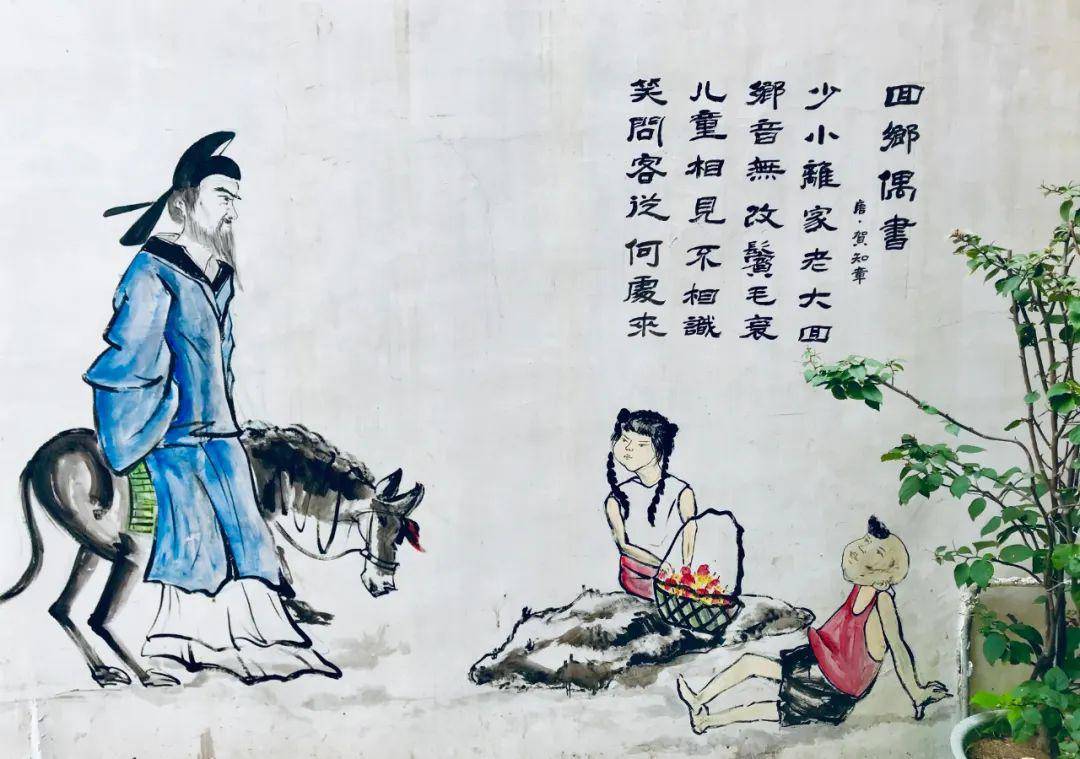 回鄉偶書
唐·賀知章
少小離家老大回
鄉音無改鬢毛衰
儿童相見不相識
笑問客從何處來